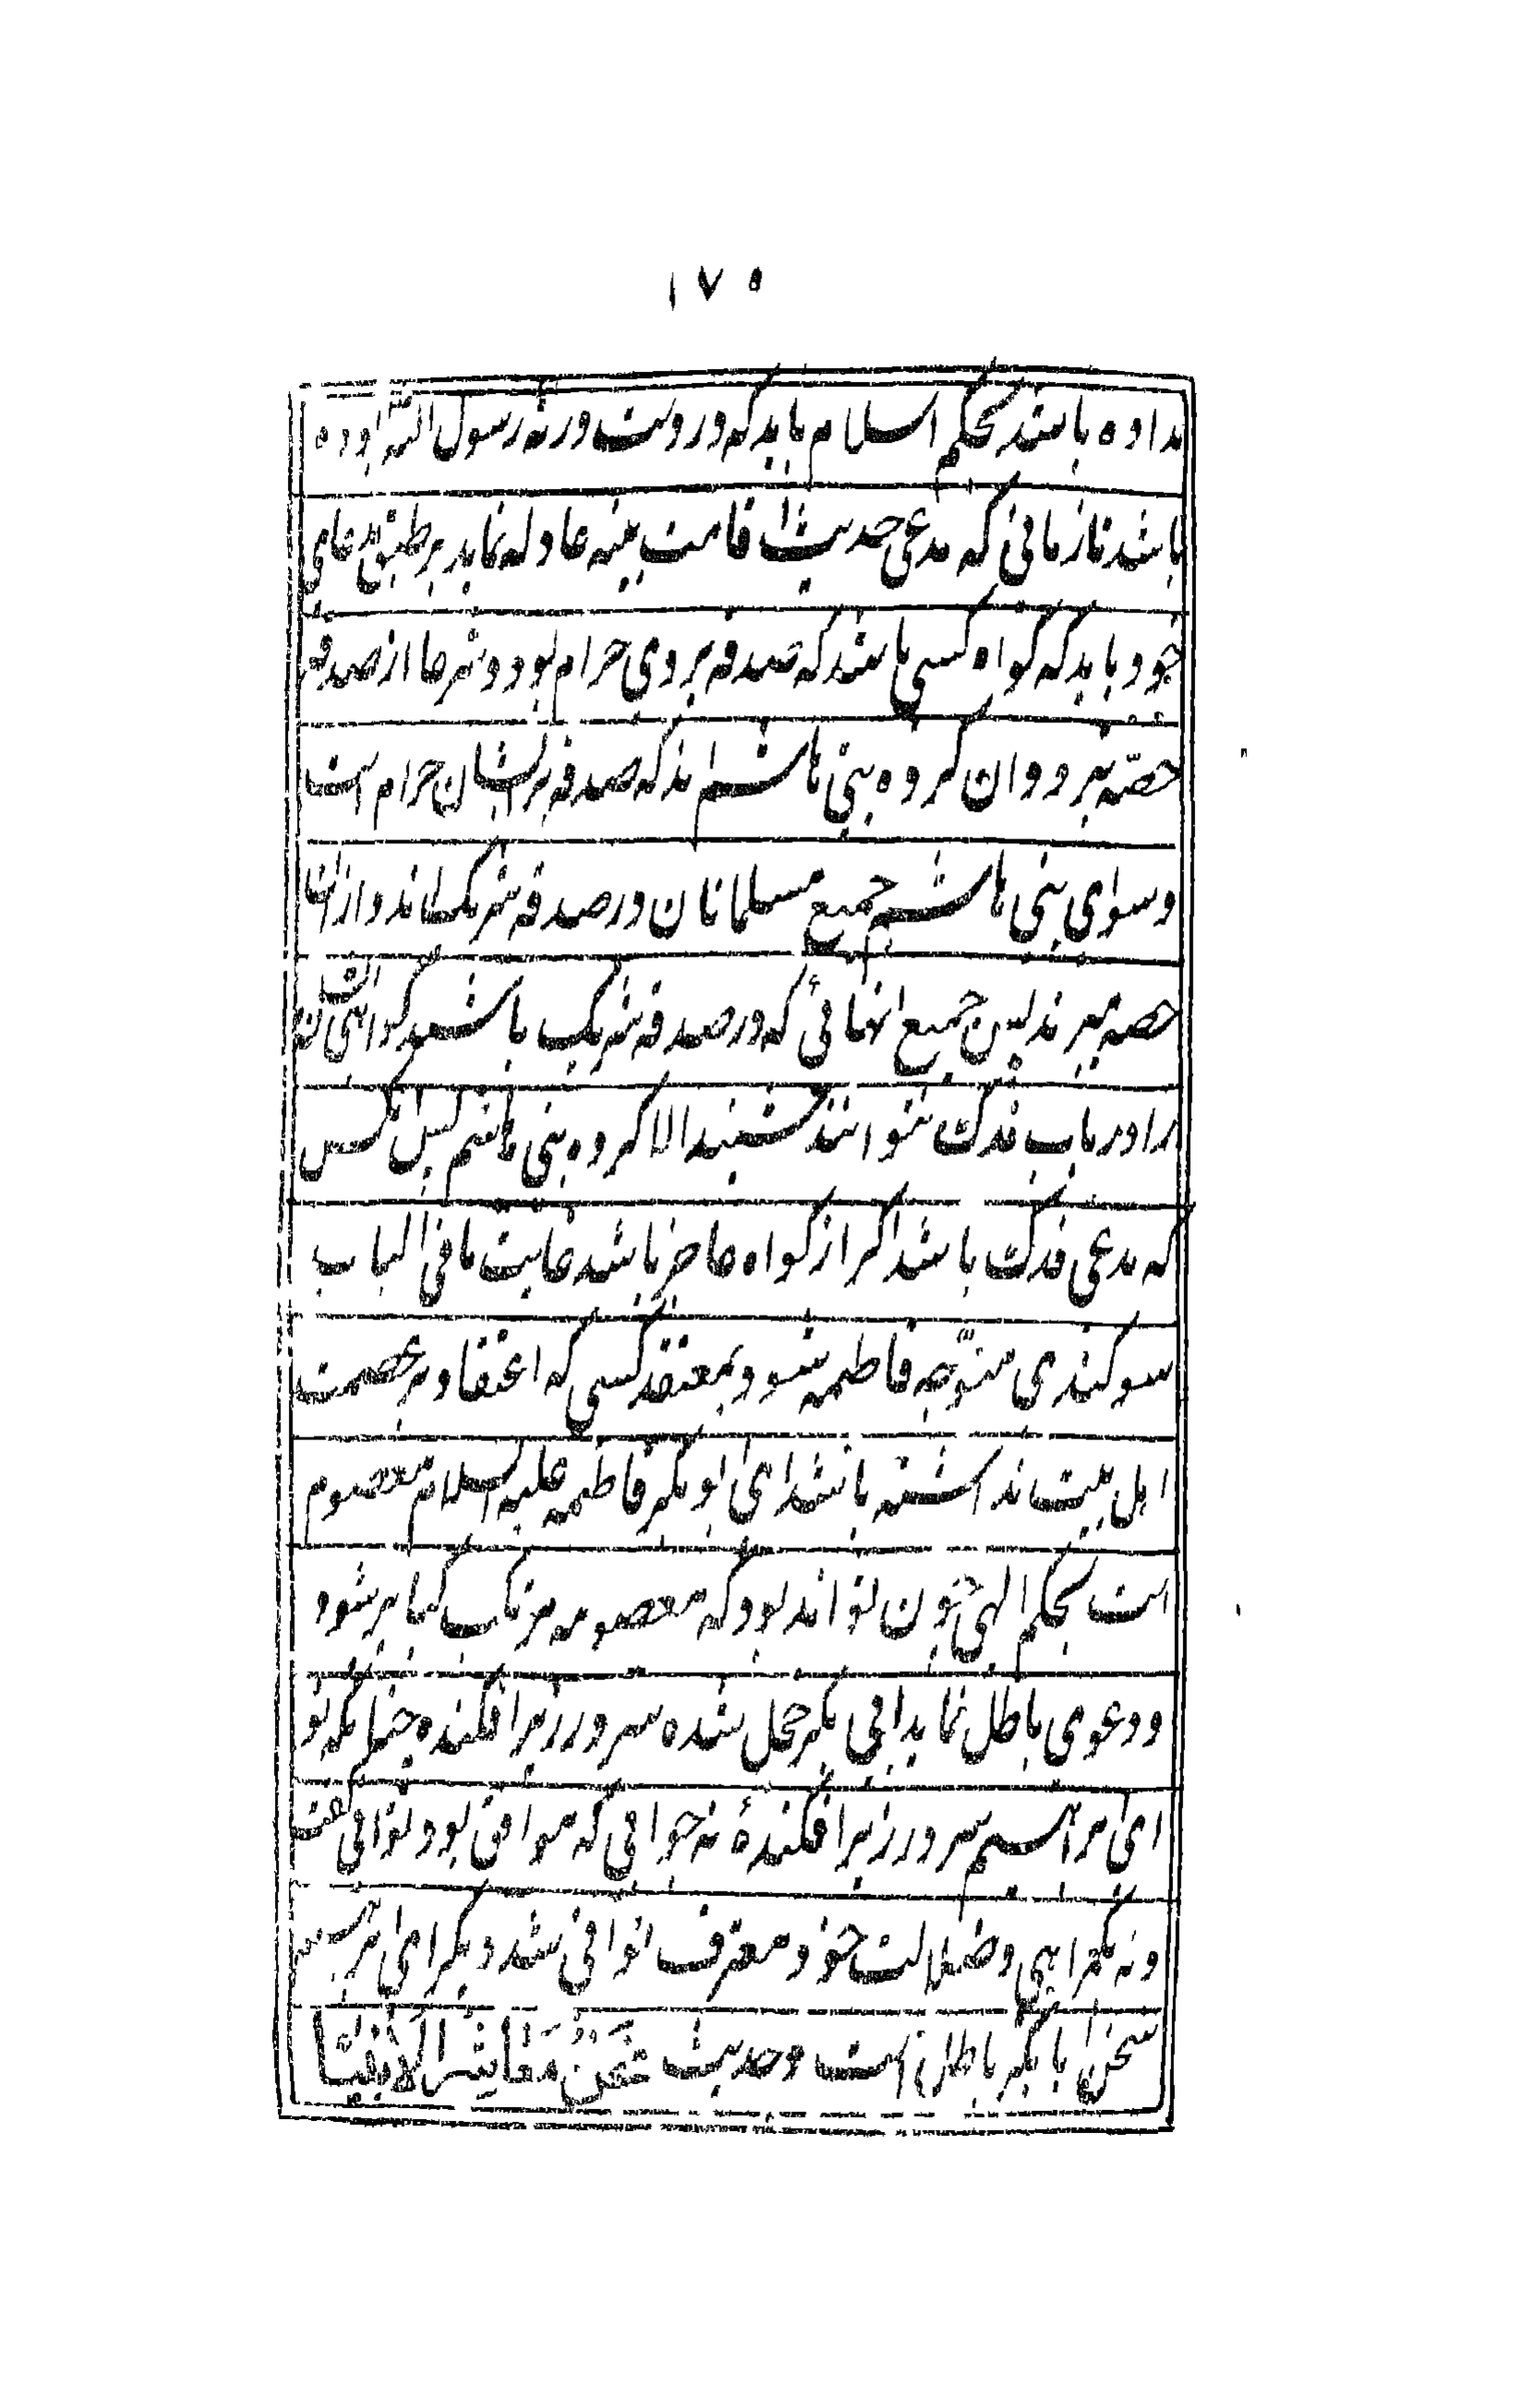 ۱۷۵
نداده باشند بحکم اسلام باید که در دست ورثه رسول الله بوده
باشد تا زمانی که مدعی حدیث اقامت بینه عادله نماید بر طبق مدعای
خود و باید که گواه کسی باشد که صدقه بر وی حرام بود و شرعا از صدقه
حصّه نبرد و ان گروه بنی هاشم اند که صدقه بر ایشان حرام است
و سوای بنی هاشم جمیع مسلمانان در صدقه شریک اند و از انجا
حصه میبرند پس جمیع انهائی که در صدقه شریک باشند گواهی ایشان
را در باب فدک نتوانند شنید الا گروه بنی هاشم پس انکس
که مدعی فدک باشد اگر از گواه عاجز باشد غایت ما فی الباب
سوگندی متوّجه فاطمه شود بمعتقد کسی که اعتقاد بر عصمت
اهل بیت نداشته باشد ای ابو بکر فاطمه علیه السلام معصوم
است بحکم الهی چون تواند بود که معصومه مرتکب کبایر شود
و دعوی باطل نماید ابی بکر خجل شده سر در زیر افکنده چنانکه تو
ای ابراهیم سر در زیر افکندهٔ نه جوابی که موافق بود توانی گفت
و نه بگمراهی و ضلالت خود معترف توانی شد دیگر ای ابراهیم
سخن ابابکر باطل است و حدیث نَحْنُ مَعَاشِرَ الْاَنْبِیَا